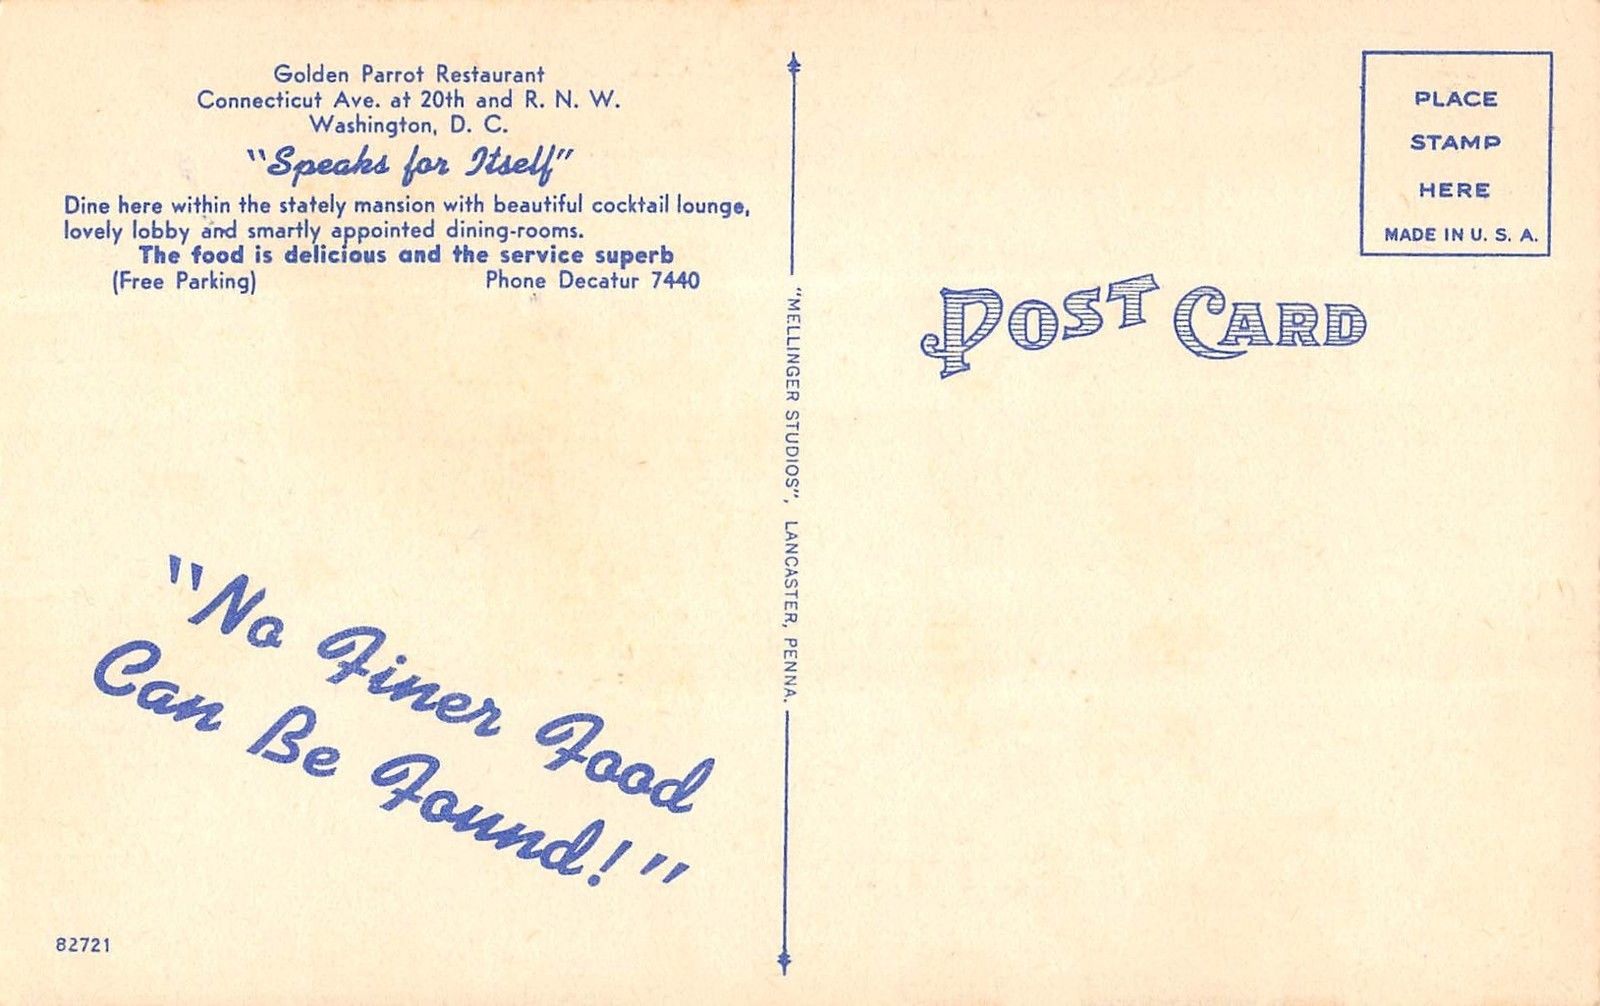 Golden Parrot Restaurant
Connecticut Ave. at 20th and R. N. W.
Washington, D. C.
"Speaks for Itself"
Dine here within the stately mansion with beautiful cocktail lounge,
lovely lobby and smartly appointed dining-rooms.
The food is delicious and the service superb
(Free Parking) Phone Decatur 7440
"No Finer Food
Can Be Found!"
82721
"MELLINGER STUDIOS", LANCASTER, PENNA.
PLACE
STAMP
HERE
MADE IN U. S. A.
POST CARD